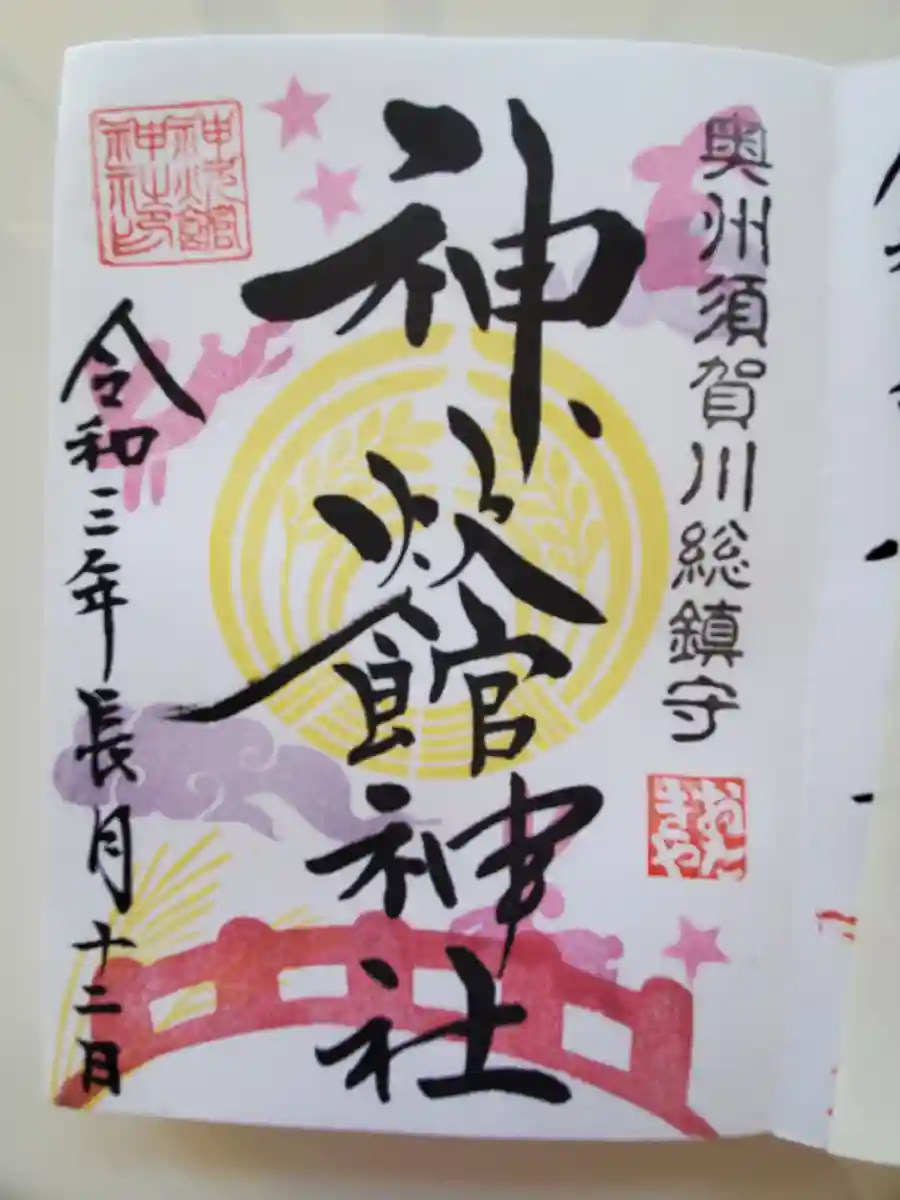 奥州須賀川総鎮守
おたきや
神炊館神社
神炊館
神社印
令和三年長月十二日